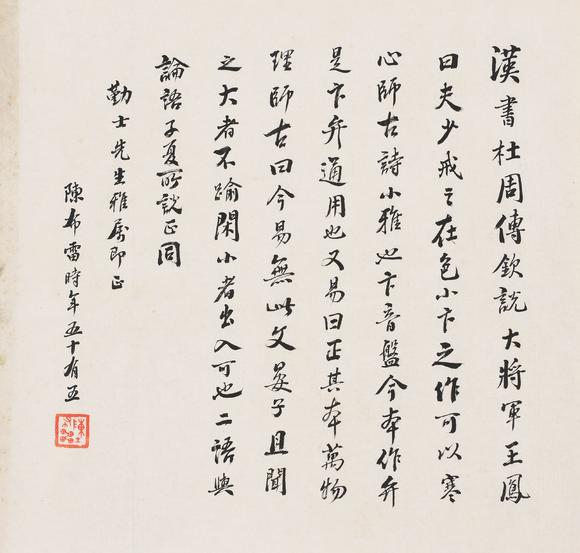 漢書杜周傳欽說大將軍王鳳
曰夫少戒之在色小卞之作可以寒
心師古詩小雅也卞音盤今本作弁
是卞弁通用也又易曰正其本萬物
理師古曰今易無此文晏子且聞
之大者不踰閑小者出入可也二語與
論語子夏所說正同
勤士先生雅屬即正
陳布雷時年五十有五